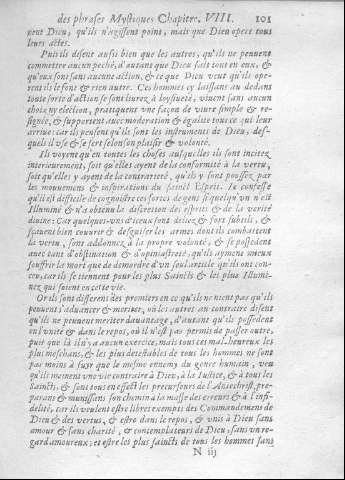 des phrases Mystiques Chapitre. VIII. 101
pent Dieu, qu'ils n'agissent point, mais que Dieu opere tous
leurs actes.
Puis ils disent aussi bien que les autres, qu'ils ne peuvent
commettre aucun peché, d'autant que Dieu fait tout en eux, &
qu'eux sont sans aucune action, & ce que Dieu veut qu'ils ope-
rent ils le font & rien autre. Ces hommes cy laissans au dedans
toute sorte d'action se sont livrez à loysiveté, vivent sans aucun
choix ny election, pratiquent une façon de vivre simple & re-
signée, & supportent avec moderation & égalité tous ce qui leur
arrive: car ils pensent qu'ils sont les instruments de Dieu, des-
quels il use & se sert selon son plaisir & volonté.
Ils voyent qu'en toutes les choses ausquelles ils sont incitez
interieurement, soit qu'elles ayent de la conformité à la vertu,
soit qu'elles y ayent de la contrarieté, qu'ils y sont poussez par
les mouvemens & inspirations du sainct Esprit. Je confesse
qu'il est difficile de cognoistre ces sortes de gens si quelqu'un n'est
Illuminé & n'a obtenu la discretion des esprits & de la verité
divine: Car quelques-uns d'iceux sont deliez & fort subtils, &
sçavent bien couvrir & desguiser les armes dont ils combattent
la vertu, sont addonnez à la propre volonté, & se possedent
avec tant d'obstination & d'opiniastreté, qu'ils ayment mieux
souffrir la mort que de demordre d'un seul article qu'ils ont con-
ceu, car ils se tiennent pour les plus Saincts & les plus Illumi-
nez qui soient en cette vie.
Or ils sont differens des premiers en ce qu'ils ne nient pas qu'ils
peuvent s'advancer & meriter, où les autres au contraire disent
qu'ils ne peuvent meriter davantage, d'autant qu'ils possedent
en l'unité & dans le repos, où il n'est pas permis de passer outre,
puis que là il n'y a aucun exercice, mais tous ces mal-heureux les
plus meschans, & les plus detestables de tous les hommes ne sont
pas moins à fuyr que le mesme ennemy du genre humain, veu
qu'ils meinent une vie contraire à Dieu, à la Justice, & à tous les
Saincts, & sont tous en effect les precurseurs de l'Antechrist, pre-
parans & munissans son chemin à la masse des erreurs & à l'infi-
delité, car ils veulent estre libres exempts des Commandemens de
Dieu & des vertus, & estre dans le repos, & unis à Dieu sans
amour & sans charité, & contemplateurs de Dieu, sans un re-
gard amoureux; et estre les plus saincts de tous les hommes sans
N iij